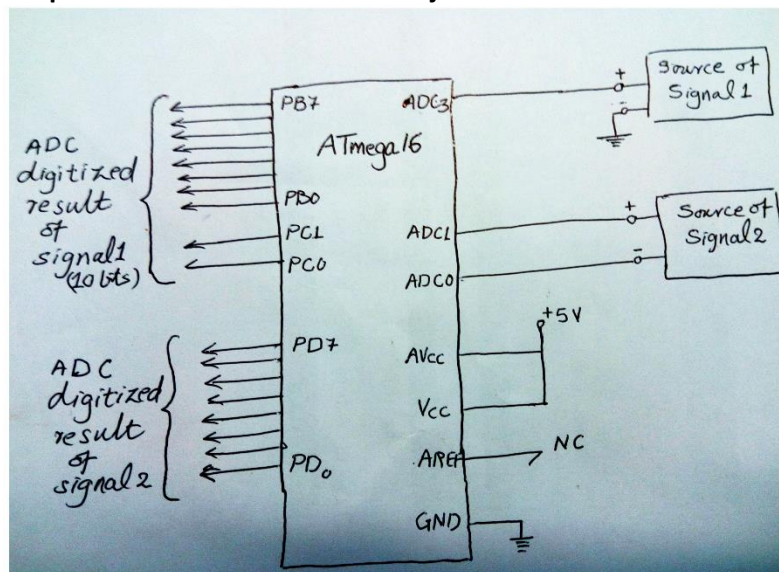 ADC
digitized
result
of
signal1
(10 bits)
ADC
digitized
result
of
signal2
PB7
PB0
PC1
PC0
PD7
PD0
ATmega16
ADC3
ADC1
ADC0
AVcc
Vcc
AREF
GND
+
-
Source of
Signal1
+
-
Source of
Signal2
+5V
NC